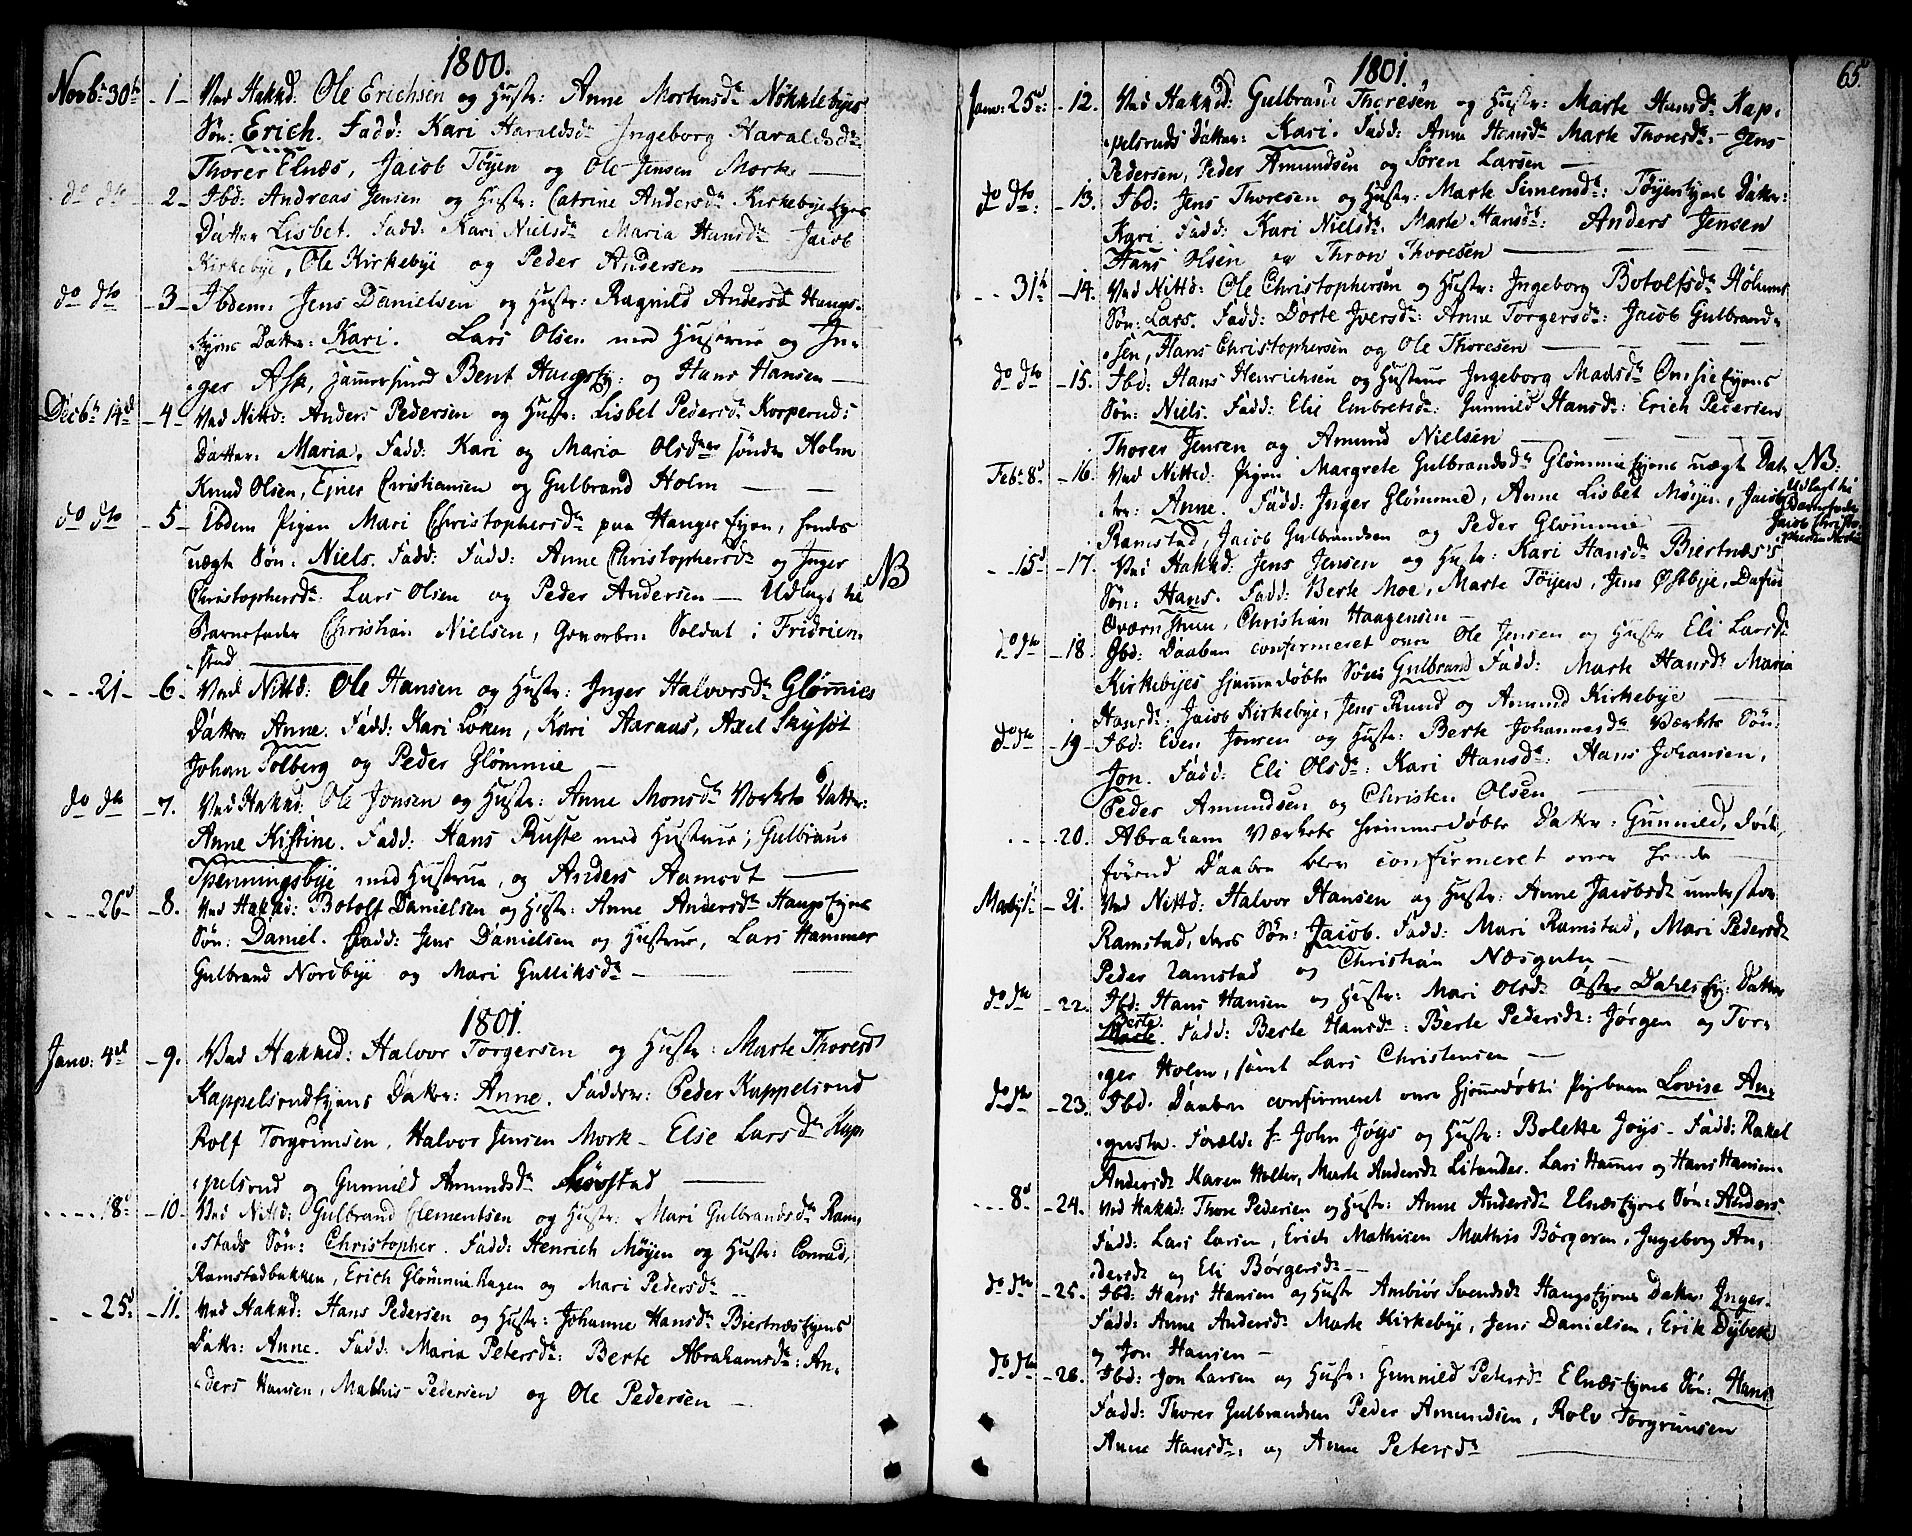 1800.
Novbr 30te -1- Ved Hakkd: Ole Erichsen og Hustr: Anne Mortensdr Nökklebyes
Søn: Erich. Fadd: Kari Haraldsdr Ingeborg Haraldsdr
Thorer Elnæs, Jacob Töyen og Ole Jensen Mork
do dto 2- Ibd: Andreas Jensen og Hustr: Catrine Andersdr Kirkebyeeyes
Datter Lisbet. Fadd: Kari Nielsdr Maria Hansdr Jacob
Kirkebye, Ole Kirkebye og Peder Andersen
do dto -3- Ibdem: Jens Danielsen og Hustr: Ragnild Andersd Haugs-
Eyens Datter: Kari. Lars Olsen med Hustrue og In-
ger Ask, Hammersmed Bent Haugsey: og Hans Hansen
Decbr 14d -4- Ved Nittd: Anders Pedersen og Hustr: Lisbet Pedersdr Korperuds
Datter: Maria. Fadd: Kari og Maria Olsdrer søndre Holm
Knud Olsen, Ejner Christiansen og Gulbrand Holm
do dto -5- Ibdem Pigen Mari Christophersdr paa Hauger Eyen, hendes
uægte Søn: Niels. Fadd: Fadd: Anne Christophersdr og Inger
Christophersdr: Lars Olsen og Peder Andersen — Udlagt til
NB
Barnefader Christian Nielsen, Geworben Soldat i Fridrich-
stad.
---21- -6- Ved Nittd: Ole Hansen og Hustr: Inger Halvorsdr Glömmies
Datter Anne. Fadd: Kari Löken, Kari Aaraas, Axel Skysöt
Johan Tolberg og Peder Glömmie
do dto -7. Ved Hakkd: Ole Jonsen og Hustr: Anne Monsdr Værkets Datter:
Anne Kistine. Fadd: Hans Ruste med Hustrue; Gulbrand
Spenningsbye med Hustrue, og Anders Aamodt
---26d -8. Ved Hakkd: Botolf Danielsen og Hustr: Anne Andersdr Haugs Eyens
Søn: Daniel. Fadd: Jens Danielsen og Hustrue, Lars Hammer
Gulbrand Nordbye og Mari Gulliksdr
1801.
Janv: 4de -9. Ved Hakkd: Halvor Torgersen og Hustr: Marte Thoresdr
Kappelsrudeyens Datter: Anne. Faddere: Peder Kappelsrud
Rolf Torgrimsen, Halvor Jensen Mork - Else Larsdr Kap-
pelsrud og Gunnild Amundsdr Sörstad
----18d -10- Ved Nittd: Gulbrand Clementsen og Hustr: Mari Gulbrandsdr Ram-
stads Søn: Christopher. Fadd: Henrich Møyen og Hustr: Conrad,
Ramstadbakken, Erich Glömmiehagen og Mari Pedersdr
- -25d -11. Ved Hakkd: Hans Pedersen og Hustr: Johanne Hansdr Biertnæs Eyens
Datr: Anne. Fadd: Maria Petersdr: Berte Abrahamsdr: An-
ders Hansen, Mathis Pedersen og Ole Pedersen
1801.
65
Janv: 25d: -12. Ved Hakkd: Gulbrand Thoresen og Hustr: Marte Hansdr Kap-
pelsruds Datter: Kari. Fadd: Anne Hansdr Marte Thoresdr: Jens
Pedersen, Peder Amundsen og Sören Larsen
do dto: -13. Ibd: Jens Thoresen og Hustr: Marte Simensdr: Töyeneyens Datter:
Kari. Fadd: Kari Nielsdr: Marte Hansdr: Anders Jensen
Hans Olsen og Thron Thoresen
-- 31te -14. Ved Nittd: Ole Christophersen og Hustr: Ingeborg Botolfsdr Holums
Søn: Lars. Fadd: Dorte Iversdr: Anne Torgersdr: Jacob Gulbrand-
sen, Hans Christophersen og Ole Thoresen
do dto -15. Ibd: Hans Henrichsen og Hustrue Ingeborg Madsdr Onsie Eyens
Søn: Niels. Fadd: Elie Embretsdr: Gunnild Hansdr: Erich Pedersen
Thorer Jensen og Amund Nielsen
Febr 8d -16. Ved Nittd. Pigen Margrete Gulbrandsdr Glömmie Eyens uægte Dat- NB:
ter: Anne. Fadd: Inger Glömmie, Anne Lisbet Möyen, Jacob Udlagt til
Barnefader
Ramstad, Jacob Gulbrandsen og Peder Glömmie Jacob Christo-
phersen
- -15d -17. Ved Hakkd: Jens Jensen og Hustr: Kari Hansdr Biertnæs's
Søn: Hans. Fadd: Berte Moe, Marte Töyen, Jens Østbye, Dafin
Qværnstuen, Christian Haagensen
do dto -18 Ibd: Daaben confirmeret over Ole Jensen og Hustr Eli Larsdr
Kirkebyes hjemmedøbte Søn Gulbrand Fadd: Marte Hansdr Maria
Hansdr: Jacob Kirkebye, Jens Ruud og Amund Kirkebye
do dto -19- Ibd: Even Jensen og Hustr: Berte Johannesdr Værkets Søn:
Jon. Fadd: Eli Olsdr: Kari Hansdr: Hans Johansen,
Peder Amundsen og Christen Olsen
---20. Abraham Værkets hiemmedøbte Datter: Gunnild, døde,
förend Daaben blev confirmeret over hende
Marty 1te -21. Ved Nittd: Halvor Hansen og Hustr: Anne Jacobsdr
Ramstad, deres Søn: Jacob. Fadd: Mari Ramstad, Mari Pedersdr
Peder Ramstad og Christian Næsgutu
do dto -22. Ibd: Hans Hansen og Hustr: Mari Olsdr Öster Dahlsey: Datter
Berte.
Marte. Fadd: Berte Hansdr: Berte Pedersdr: Jörgen og Tor-
ger Holm, samt Lars Christensen
do dto -23. Ibd. Daaben confirmeret over hjemmedöbte Pigebarn Lovise Au-
gusta. Foreld: S. John Joys og Hustr: Bolette Joys - Fadd: Rakel
Andersdr Karen Holter, Marte Andersdr Litander. Lars Hammer og Hans Hansen
---8d -24. Ved Hakkd: Thore Pedersen og Hustr: Anne Andersdr Elnæs Eyens Søn: Anders
Fadd: Lars Larsen, Erich Mathisen Mathis Börgersen, Ingeborg An-
dersdr og Eli Börgersdr
do dto -25. Ibd: Hans Hansen og Hustr Ambiör Svendsdr Haugs Eyens Datter Inger.
Fadd: Anne Andersdr Marte Kirkebye, Jens Danielsen, Erik Dybek
og Jon Hansen -
do dto -26. Ibd: Jon Larsen og Hustr: Gunnild Petersdr Elnæs Eyens Søn: Hans
Fadd: Thorer Gulbrandsen Peder Amundsen, Rolv Torgrimsen
Anne Hansdr, og Anne Petersdr